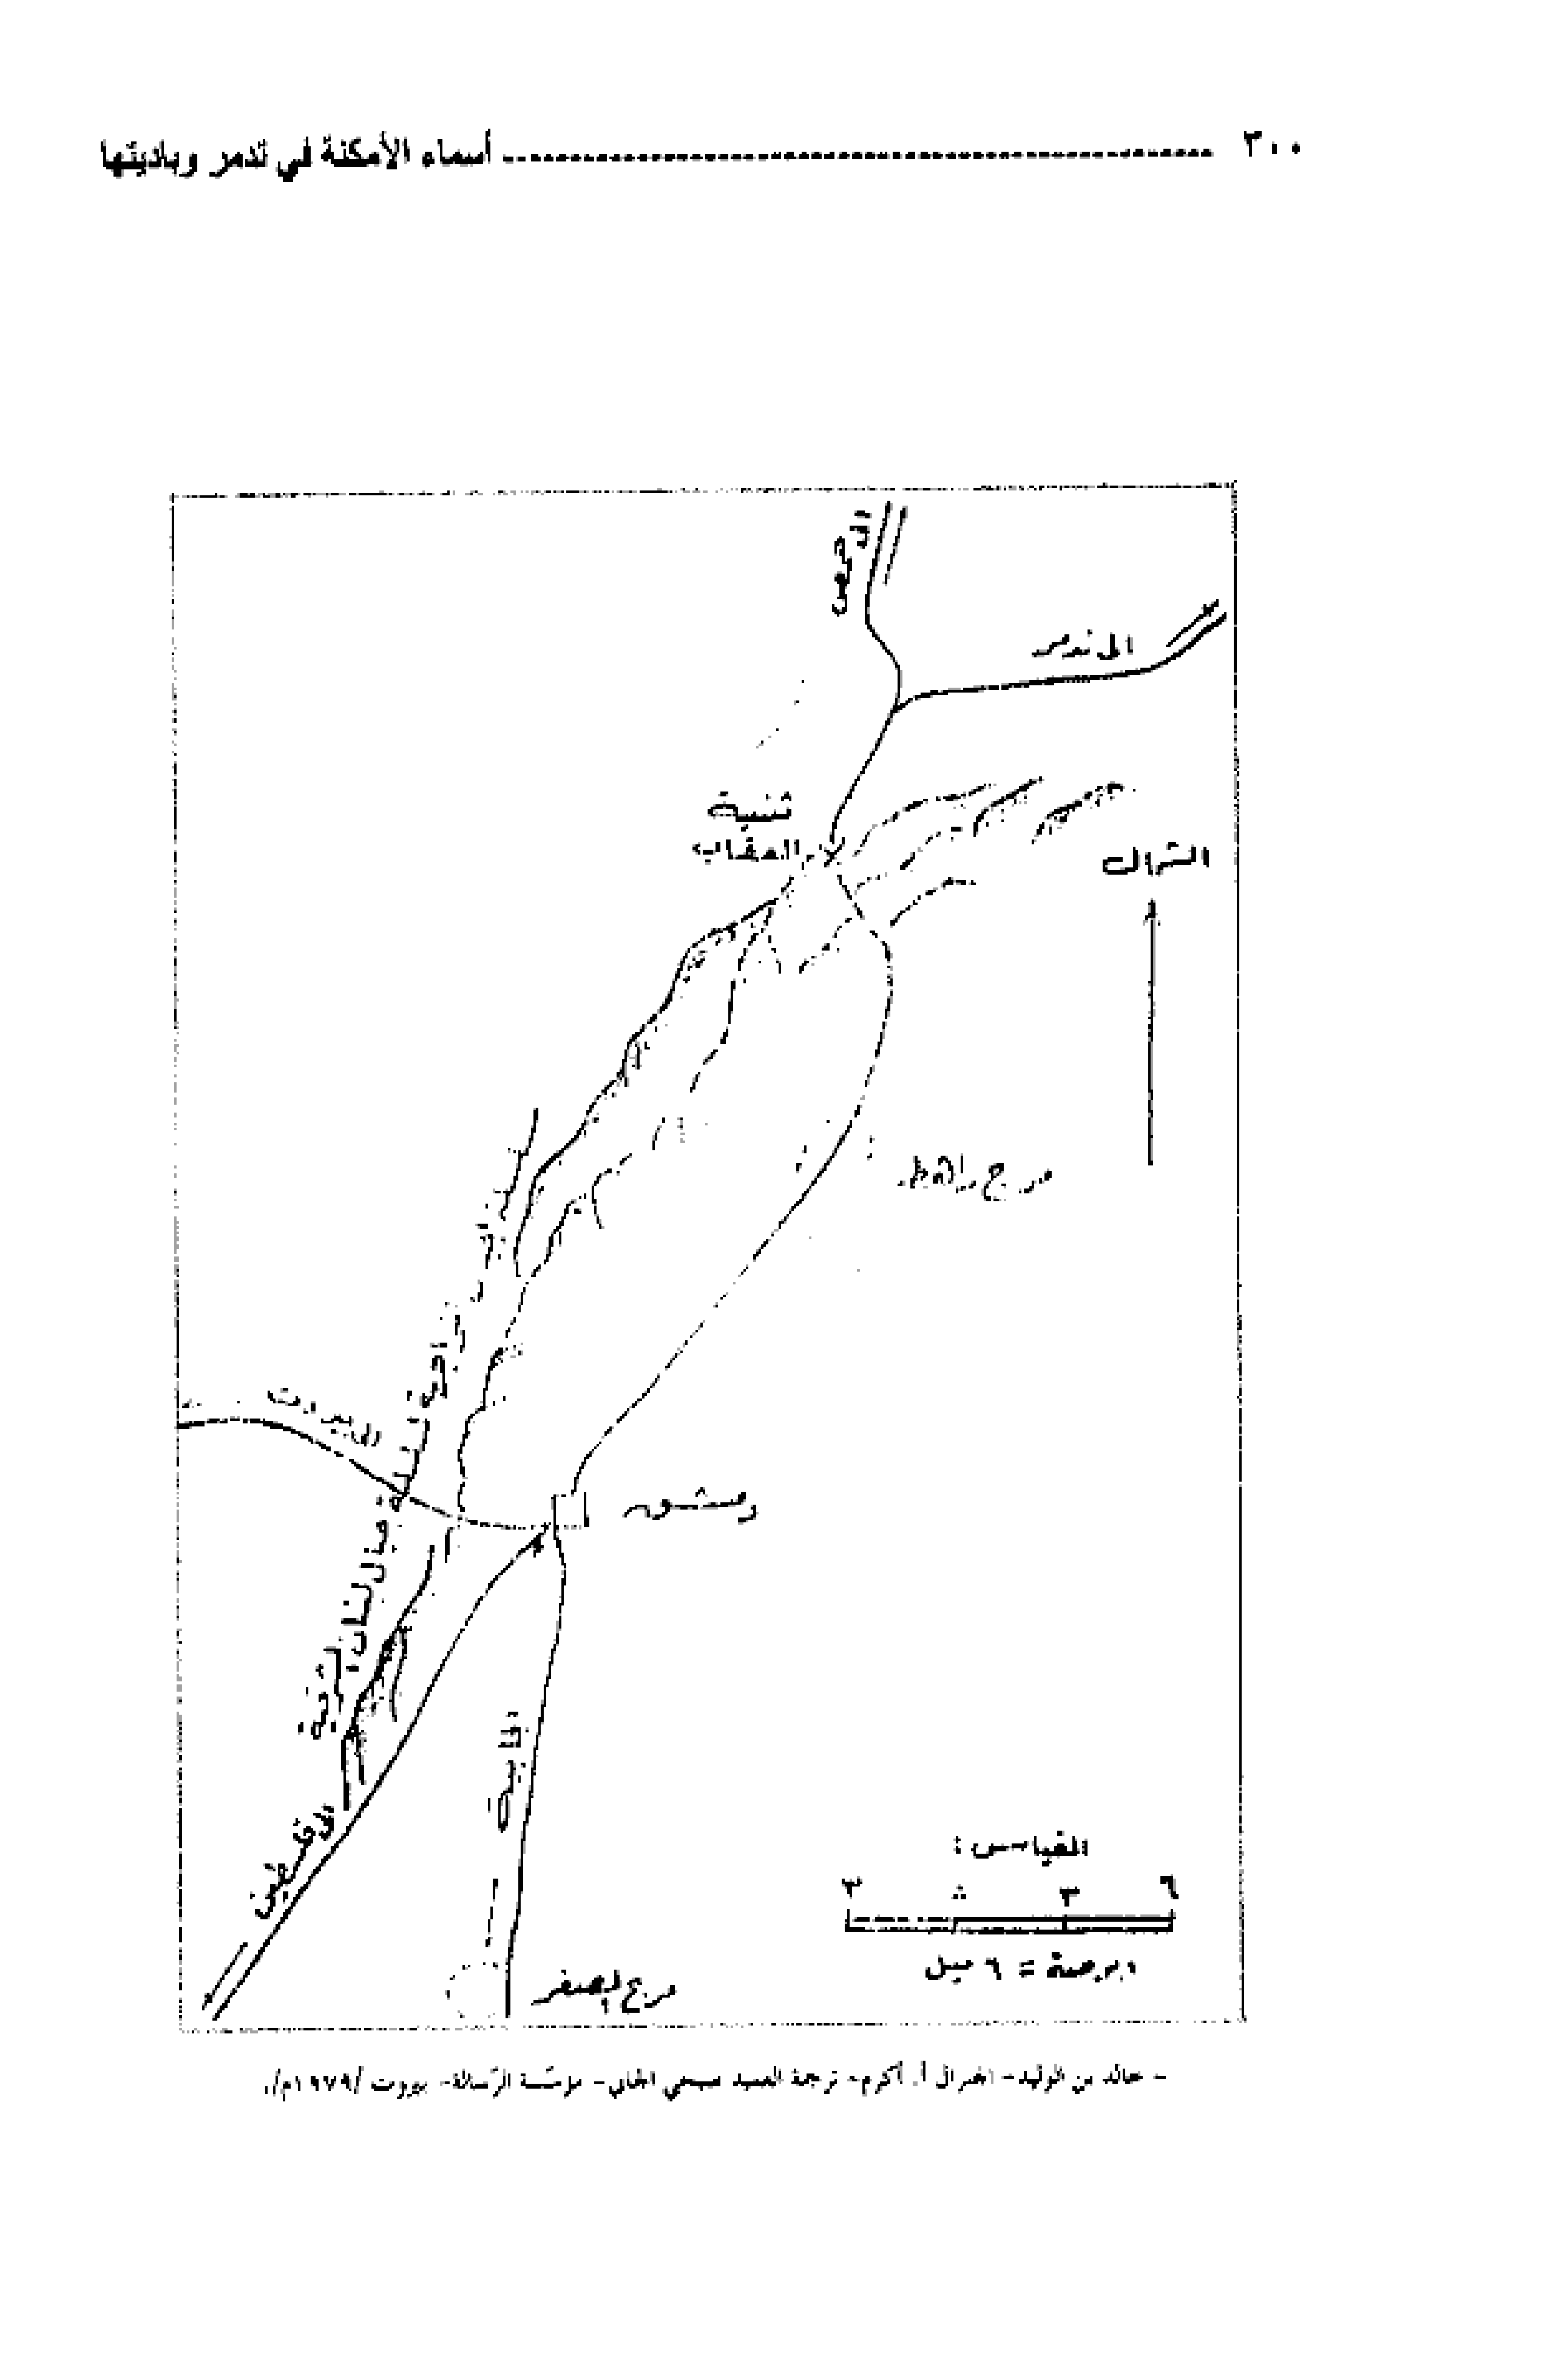 ٣٠٠ ------------------------------ أسماء الأمكنة في تدمر وباديتها
الى حمص
الى تدمر
ثنية
العقاب
الشمال
مرج راهط
الى بيروت
دمشق
جبال لبنان الشرقية
الى فلسطين
المقياس :
٣ ٠ ٣ ٦
١ بوصة = ٦ ميل
مرج الصفر
- خالد بن الوليد - الجنرال أ. أكرم - ترجمة العميد صبحي الجابي - مؤسّسة الرّسالة - بيروت /١٩٧٩م/.